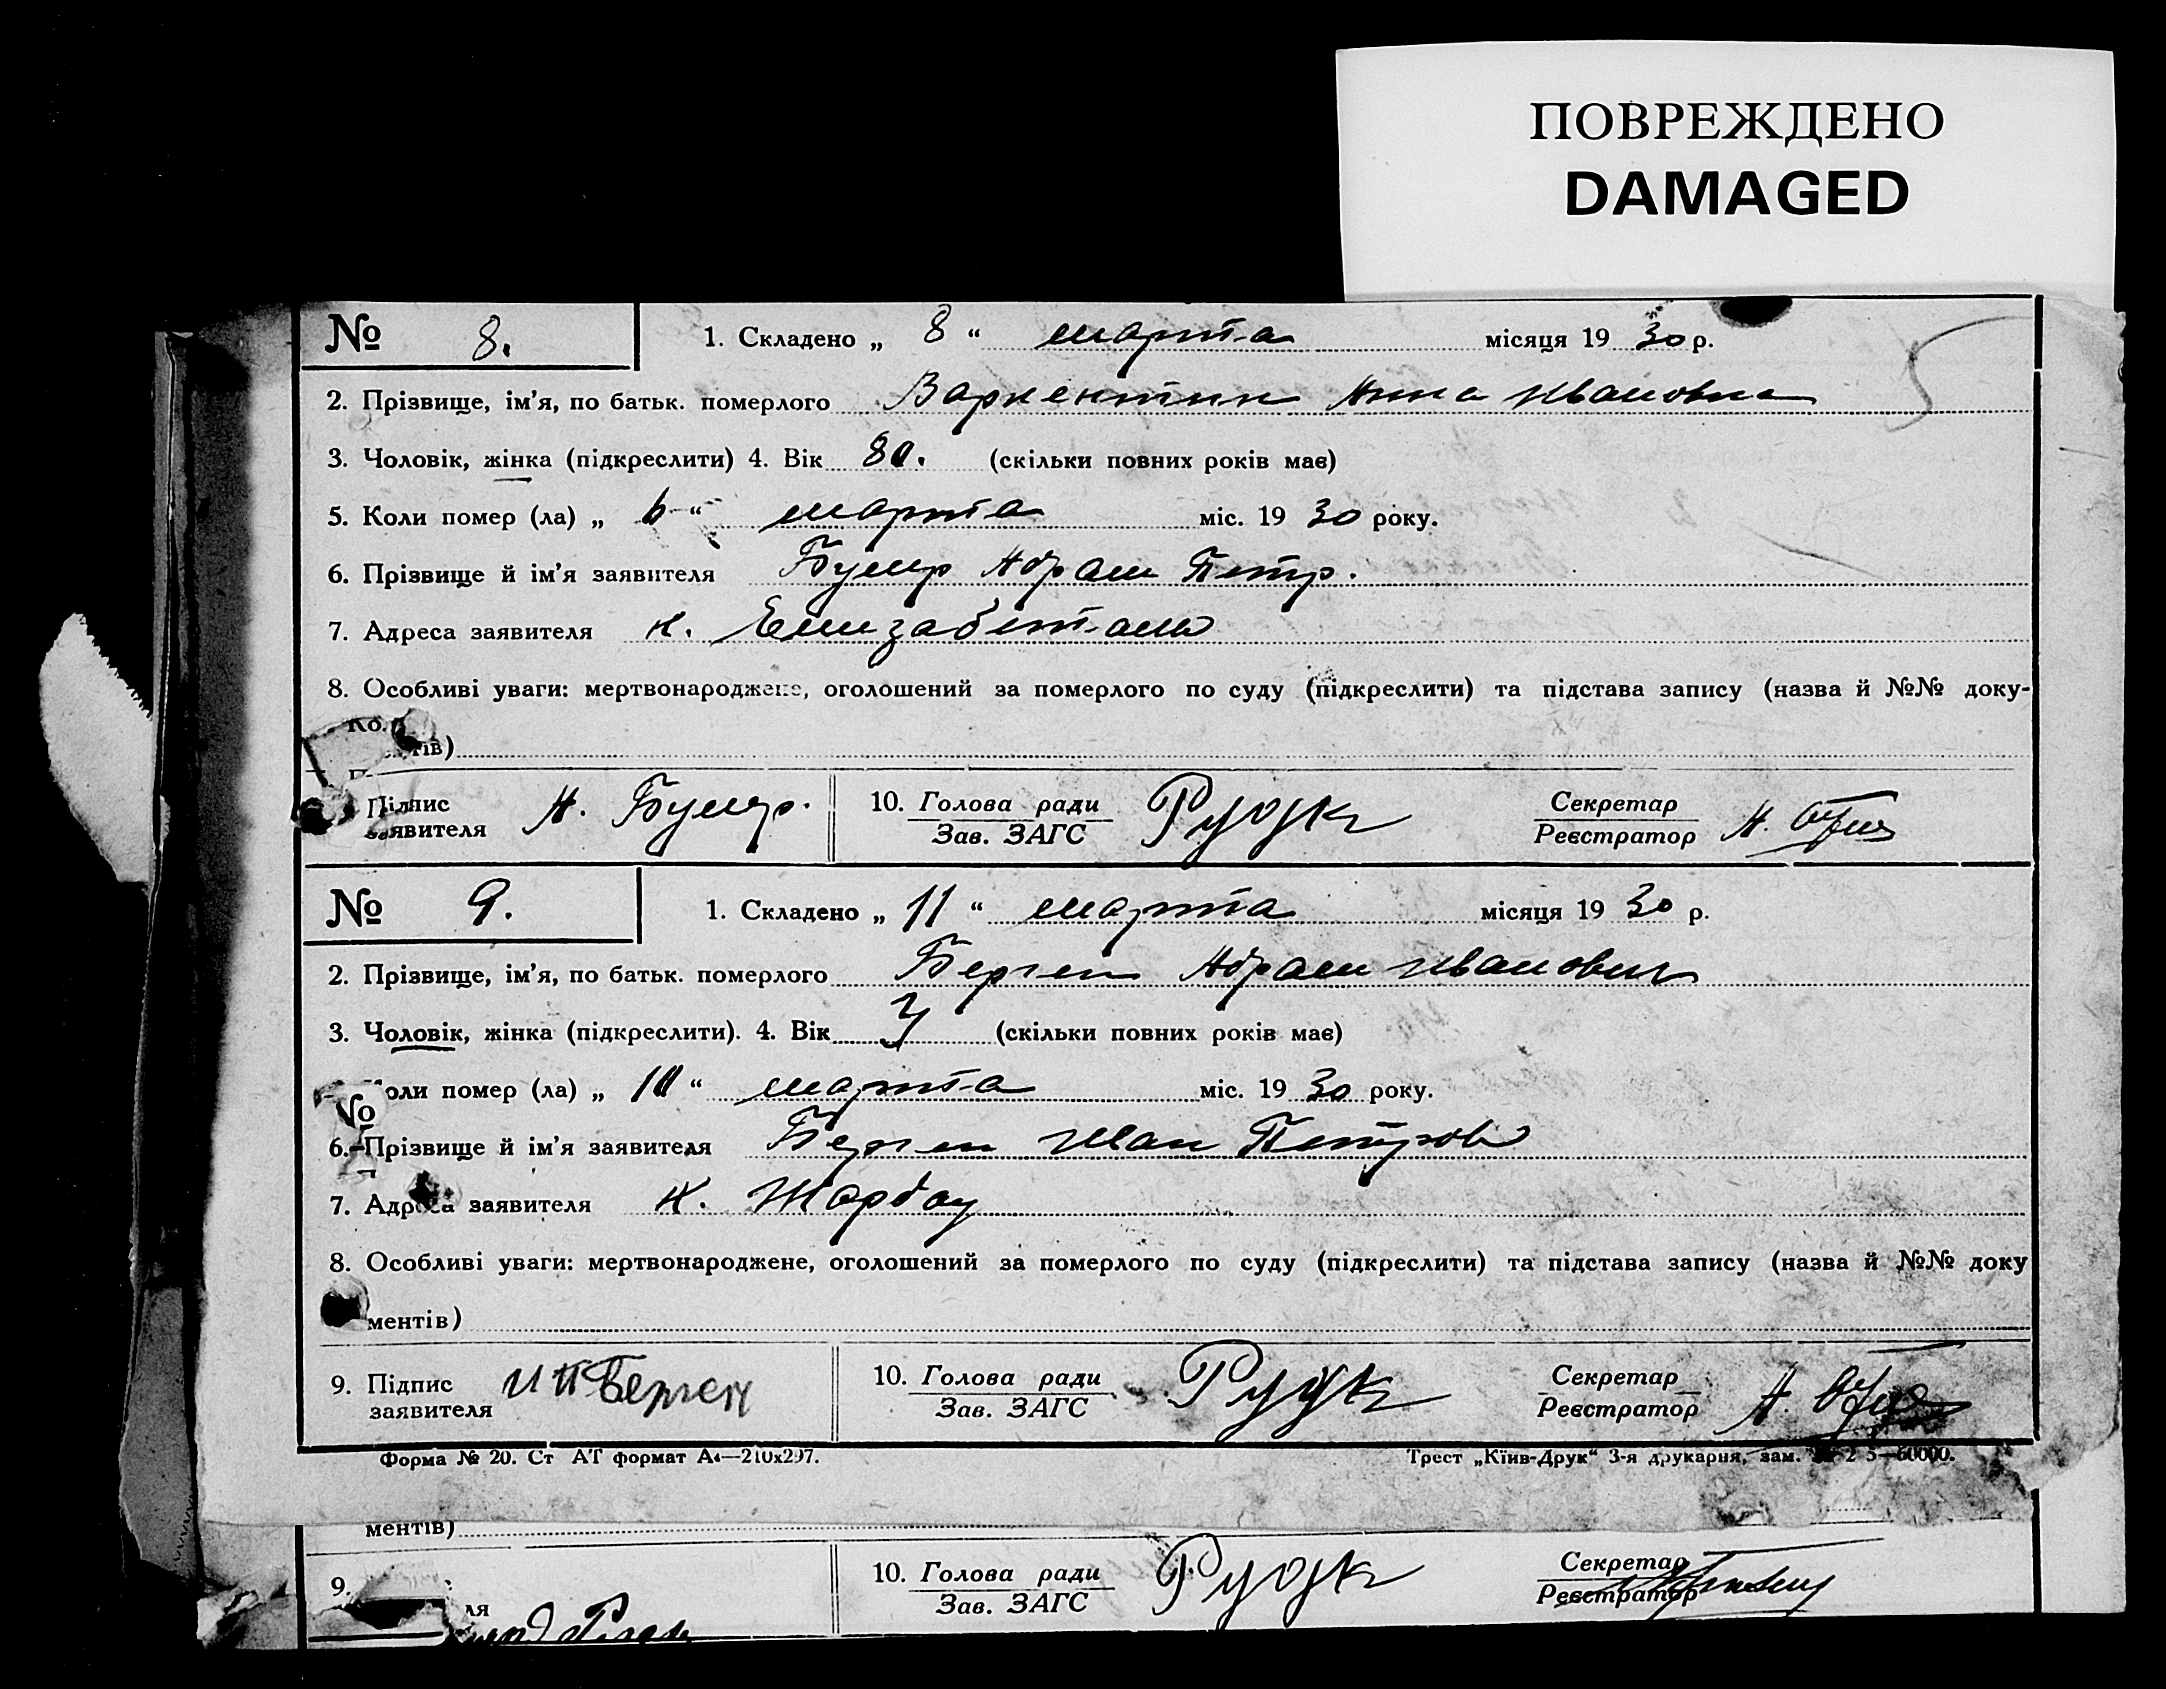 ПОВРЕЖДЕНО
DAMAGED
№ 8. 1. Складено „ 8 “ марта місяця 19 30 р.
2. Прізвище, ім’я, по батьк. померлого Варкентин Анна Ивановна
3. Чоловік, жінка (підкреслити) 4. Вік 80. (скільки повних років має)
5. Коли помер (ла) „ 6 “ марта міс. 19 30 року.
6. Прізвище й ім’я заявителя Абрам Петр.
7. Адреса заявителя к. Елизабетталь
8. Особливі уваги: мертвонароджене, оголошений за померлого по суду (підкреслити) та підстава запису (назва й №№ доку-
Підпис заявителя А. 10. Голова ради Зав. ЗАГС Секретар Реєстратор А.
№ 9. 1. Складено „ 11 “ марта місяця 19 30 р.
2. Прізвище, ім’я, по батьк. померлого Берген Абрам Иванович
3. Чоловік, жінка (підкреслити). 4. Вік (скільки повних років має)
Коли помер (ла) „ “ марта міс. 19 30 року.
№
6. Прізвище й ім’я заявителя Берген Иван Петров
7. Адреса заявителя к. Мордау
8. Особливі уваги: мертвонароджене, оголошений за померлого по суду (підкреслити) та підстава запису (назва й №№ доку
ментів)
9. Підпис заявителя И П Берген 10. Голова ради Зав. ЗАГС Секретар Реєстратор А.
Форма № 20. Ст АТ формат А4—210х297. Трест „Київ-Друк“ 3-я друкарня, зам.
ментів)
9. 10. Голова ради Зав. ЗАГС Секретар Реєстратор